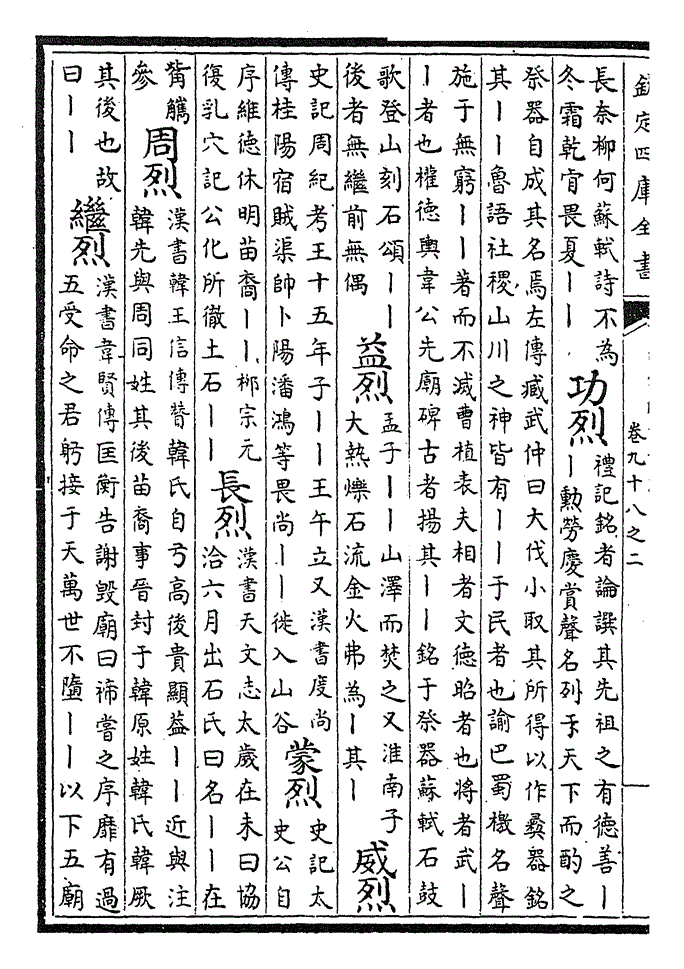 欽定四庫全書
卷九十八之二
長奈柳何蘇軾詩不為
冬霜乾肯畏夏丨丨
功烈
禮記銘者論譔其先祖之有德善丨
丨勳勞慶賞聲名列于天下而酌之
祭器自成其名焉左傳臧武仲曰大伐小取其所得以作彞器銘
其丨丨魯語社稷山川之神皆有丨丨于民者也諭巴蜀檄名聲
施于無窮丨丨著而不滅曹植表夫相者文德昭者也將者武丨
丨者也權德輿韋公先廟碑古者揚其丨丨銘于祭器蘇軾石鼓
歌登山刻石頌丨丨
後者無繼前無偶
益烈
孟子丨丨山澤而焚之又淮南子
大熱爍石流金火弗為丨其丨
威烈
史記周紀考王十五年子丨丨王午立又漢書度尚
傳桂陽宿賊渠帥卜陽潘鴻等畏尚丨丨徙入山谷
蒙烈
史記太
史公自
序維德休明苗裔丨丨柳宗元
復乳穴記公化所徹土石丨丨
長烈
漢書天文志太歲在未曰協
洽六月出石氏曰名丨丨在
觜觿
參
周烈
漢書韓王信傳贊韓氏自弓高後貴顯葢丨丨近與注
韓先與周同姓其後苗裔事晉封于韓原姓韓氏韓厥
其後也故
曰丨丨
繼烈
漢書韋賢傳匡衡告謝毀廟曰禘嘗之序靡有過
五受命之君躬接于天萬世不墮丨丨以下五廟